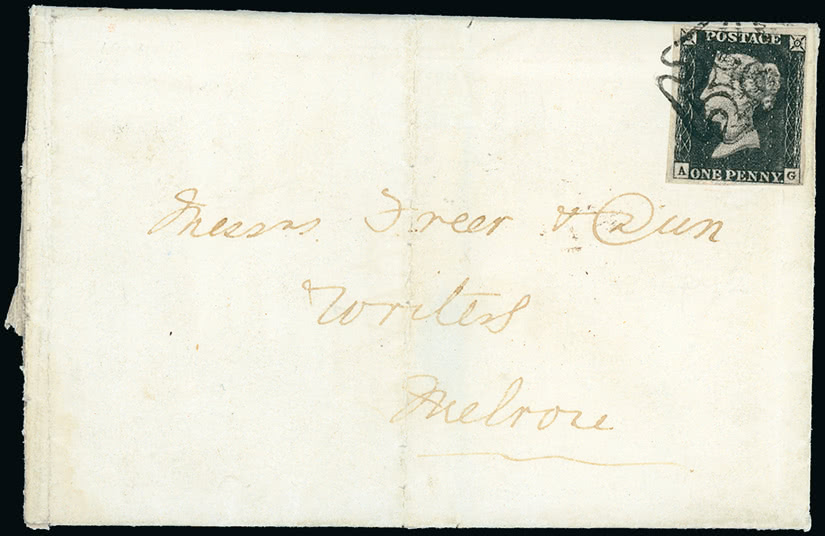 POSTAGE
A ONE PENNY. G
Messrs Freer & Dun
Writers
Melrose